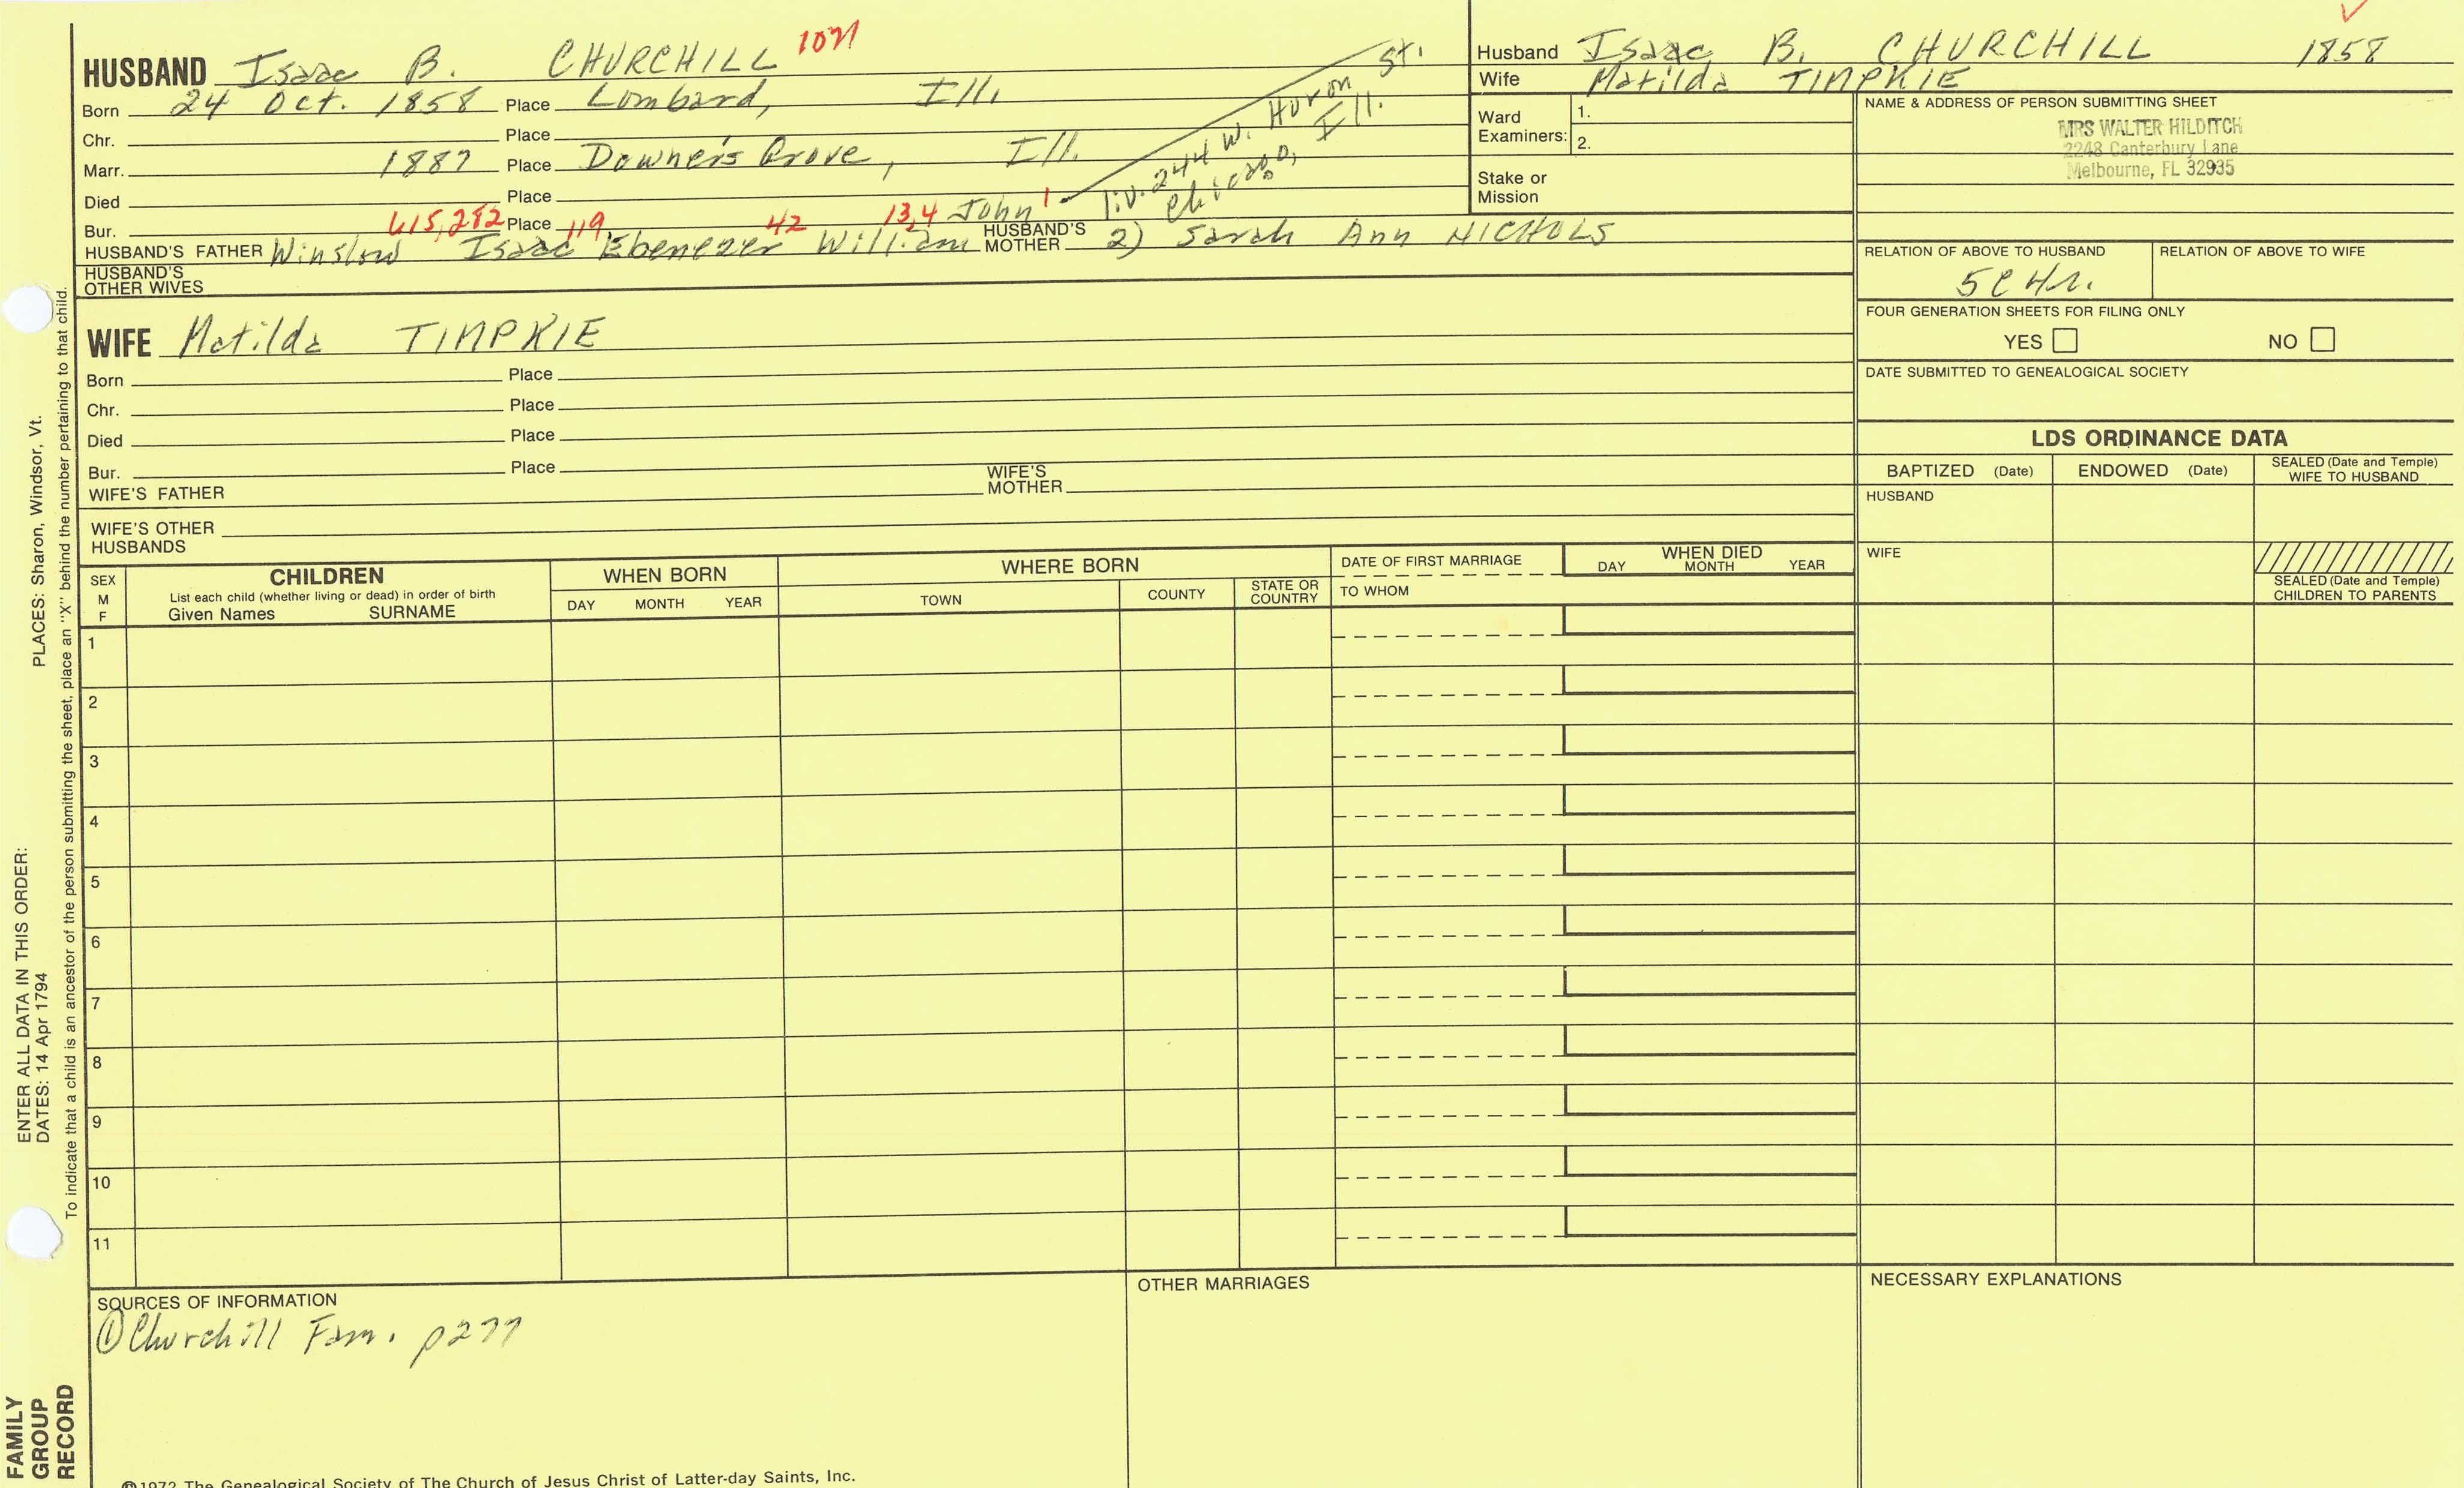 HUSBAND Isaac B. CHURCHILL
Born 24 Oct. 1858 Place Lombard, Ill.
Chr. Place
Marr. 1887 Place Downer's Grove, Ill.
Died Place
liv. 244 W. Huron St.
Chicago, Ill.
615,282 119 42 13,4 John 1
Bur. Place
HUSBAND'S FATHER Winslow Isaac Ebenezer William HUSBAND'S MOTHER 2) Sarah Ann NICHOLS
HUSBAND'S OTHER WIVES
WIFE Matilda TIMPKIE
Born Place
Chr. Place
Died Place
Bur. Place
WIFE'S FATHER WIFE'S MOTHER
WIFE'S OTHER HUSBANDS
Husband Isaac B. CHURCHILL 1858
Wife Matilda TIMPKIE
Ward Examiners: 1.
2.
Stake or Mission
NAME & ADDRESS OF PERSON SUBMITTING SHEET
MRS WALTER HILDITCH
2248 Canterbury Lane
Melbourne, FL 32935
RELATION OF ABOVE TO HUSBAND RELATION OF ABOVE TO WIFE
FOUR GENERATION SHEETS FOR FILING ONLY
YES NO
DATE SUBMITTED TO GENEALOGICAL SOCIETY
LDS ORDINANCE DATA
BAPTIZED (Date) ENDOWED (Date) SEALED (Date and Temple) WIFE TO HUSBAND
HUSBAND
WIFE
SEALED (Date and Temple) CHILDREN TO PARENTS
SEX M F
CHILDREN
List each child (whether living or dead) in order of birth
Given Names SURNAME
WHEN BORN
DAY MONTH YEAR
WHERE BORN
TOWN COUNTY STATE OR COUNTRY
DATE OF FIRST MARRIAGE
TO WHOM
WHEN DIED
DAY MONTH YEAR
1
2
3
4
5
6
7
8
9
10
11
SOURCES OF INFORMATION
① Churchill Fam. p277
OTHER MARRIAGES
NECESSARY EXPLANATIONS
©1972 The Genealogical Society of The Church of Jesus Christ of Latter-day Saints, Inc.
FAMILY
GROUP
RECORD
ENTER ALL DATA IN THIS ORDER:
DATES: 14 Apr 1794 PLACES: Sharon, Windsor, Vt.
To indicate that a child is an ancestor of the person submitting the sheet, place an "X" behind the number pertaining to that child.